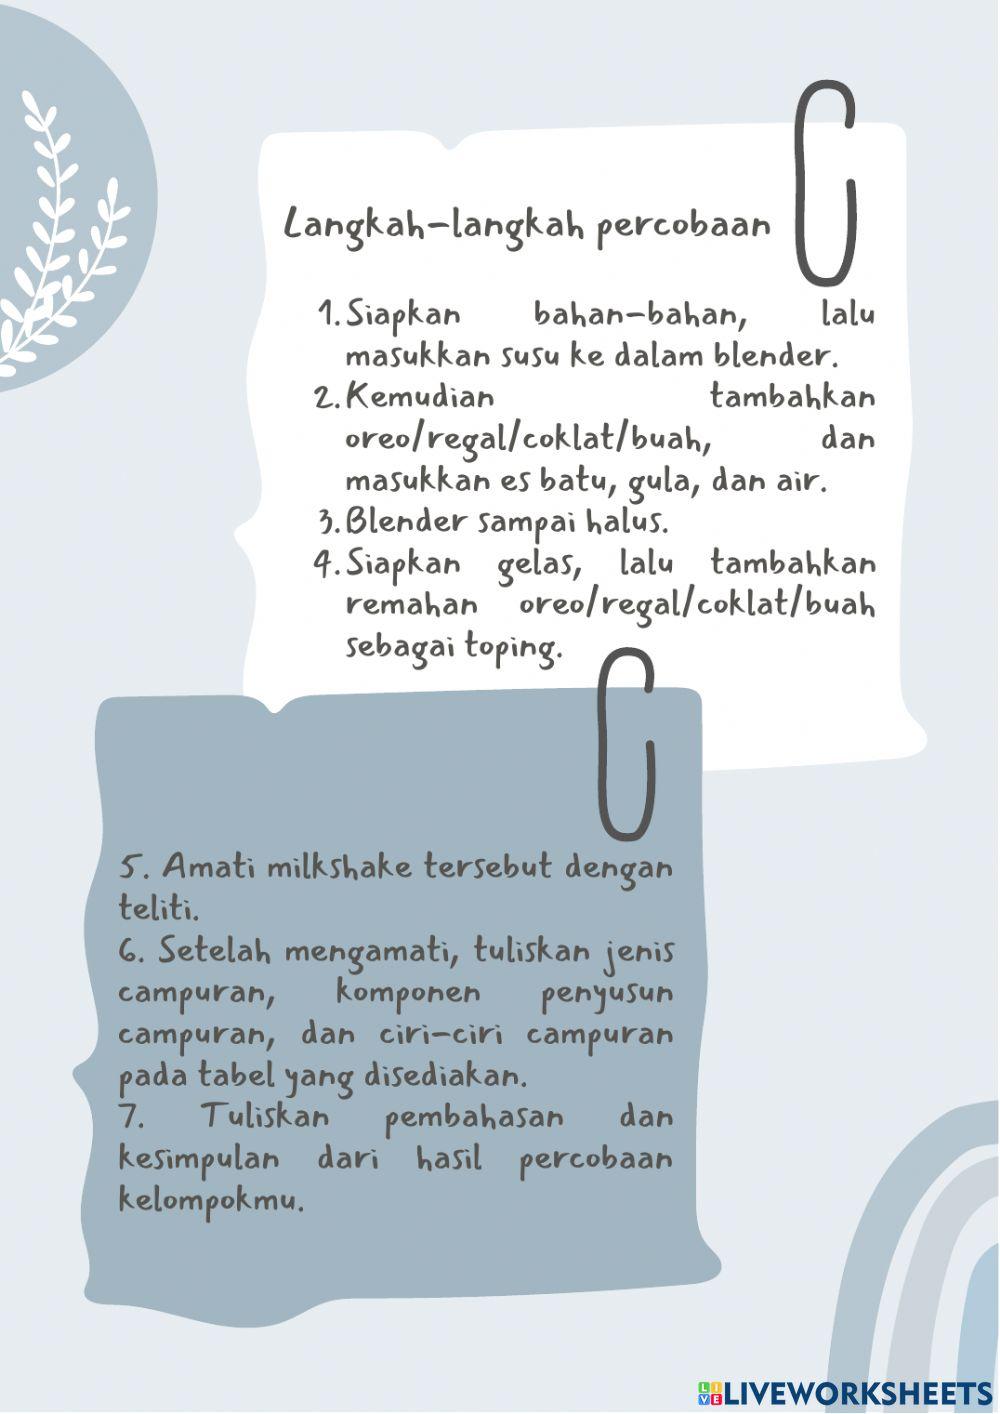 Langkah-langkah percobaan
1. Siapkan bahan-bahan, lalu
masukkan susu ke dalam blender.
2. Kemudian tambahkan
oreo/regal/coklat/buah, dan
masukkan es batu, gula, dan air.
3. Blender sampai halus.
4. Siapkan gelas, lalu tambahkan
remahan oreo/regal/coklat/buah
sebagai toping.
5. Amati milkshake tersebut dengan
teliti.
6. Setelah mengamati, tuliskan jenis
campuran, komponen penyusun
campuran, dan ciri-ciri campuran
pada tabel yang disediakan.
7. Tuliskan pembahasan dan
kesimpulan dari hasil percobaan
kelompokmu.
LIVE LIVEWORKSHEETS